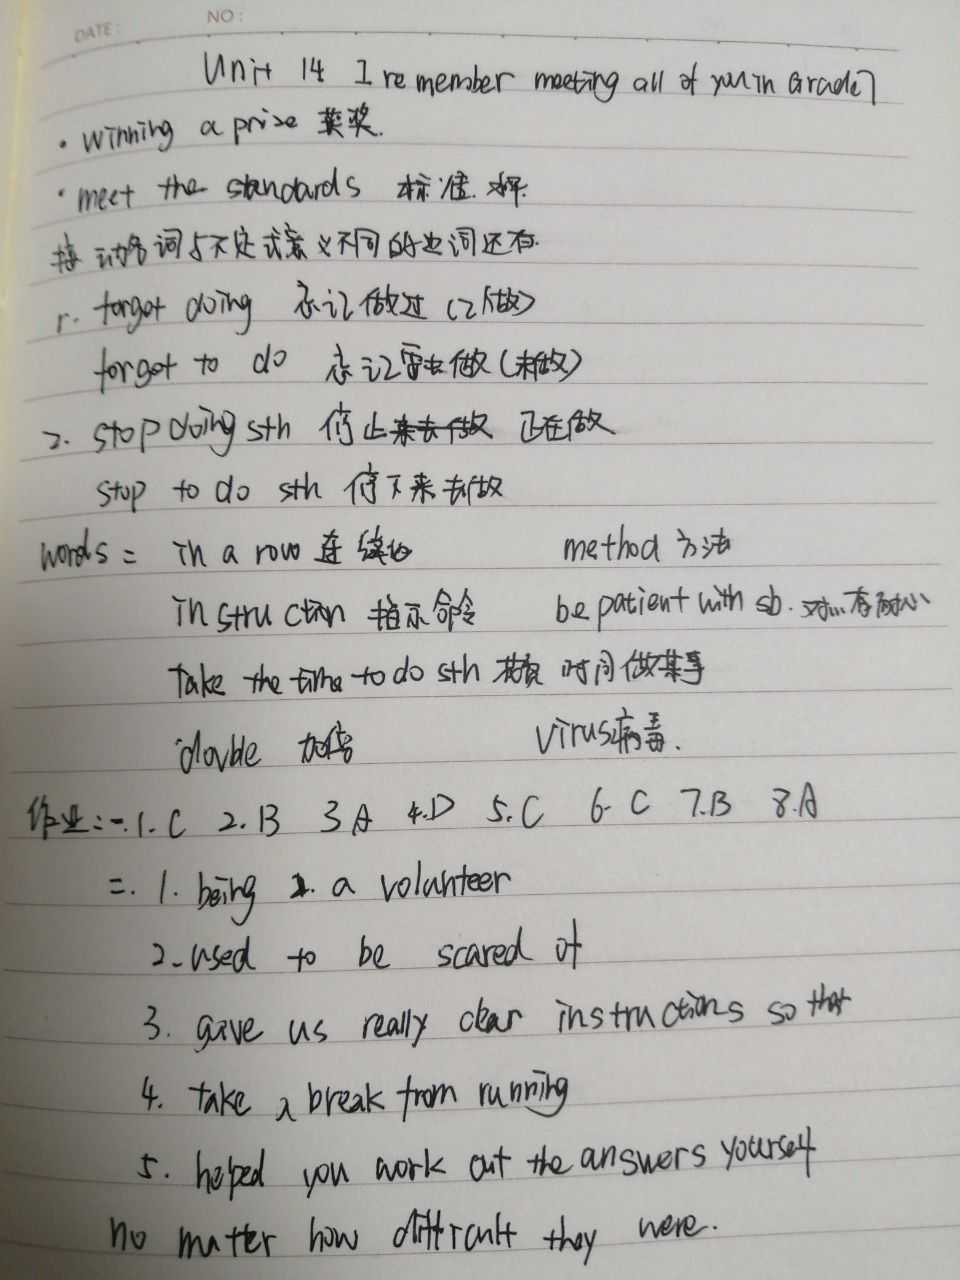 DATE: NO:
Unit 14 I remember meeting all of you in Grade 7
· winning a prize 获奖.
· meet the standards 标准.水平
接动名词与不定式意义不同的动词还有.
1. forget doing 忘记做过 (已做)
forget to do 忘记要去做 (未做)
2. stop doing sth 停止来去做 正在做
stop to do sth 停下来去做
words: in a row 连续地 method 方法
instruction 指示 命令 be patient with sb. 对...有耐心
Take the time to do sth 花费 时间做某事
double 加倍 virus病毒.
作业:一.1.C 2.B 3 A 4.D 5.C 6.C 7.B 8.A
二. 1. being a volunteer
2. used to be scared of
3. gave us really clear instructions so that
4. take a break from running
5. helped you work out the answers yourself
no matter how difficult they were.